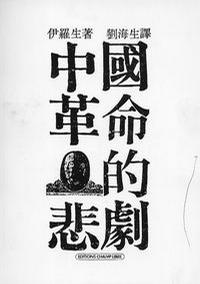 伊羅生著 劉海生譯
中國
革命
的
悲劇
EDITIONS CHAMP LIBRE